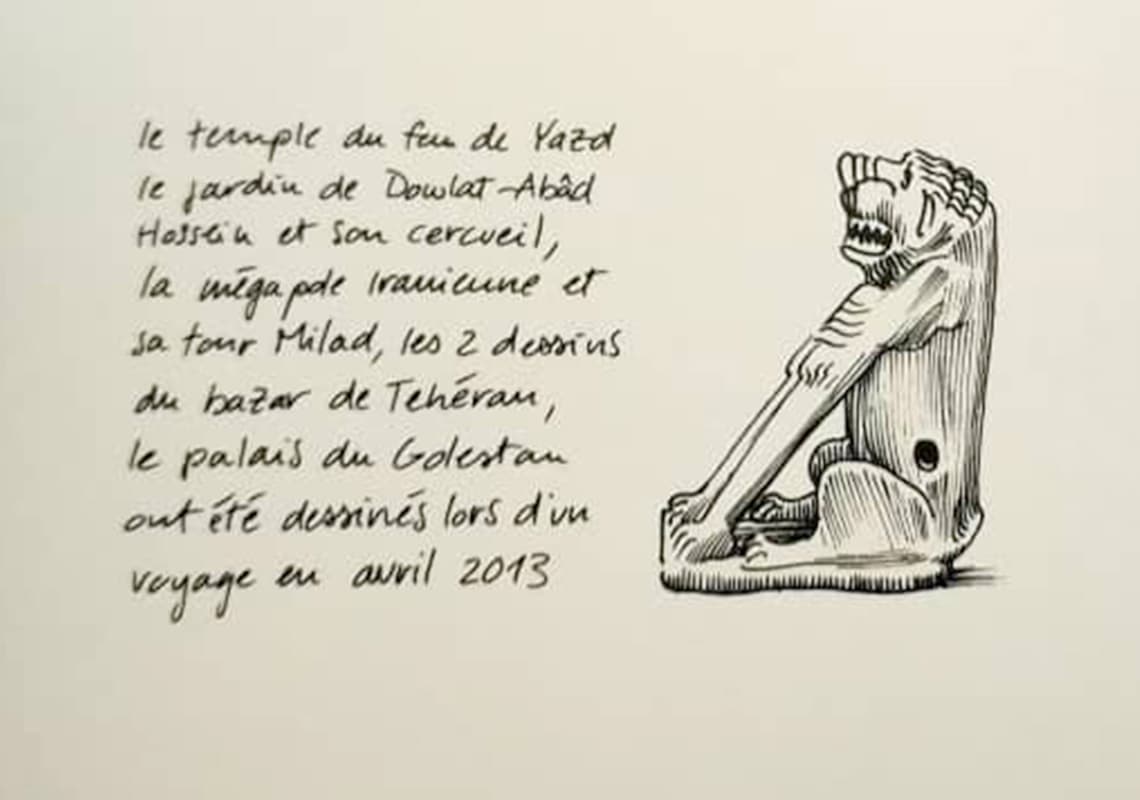 le temple du feu de Yazd
le jardin de Dowlat-Abâd
Hossein et son cercueil,
la mégapole Iranienne et
sa tour Milad, les 2 dessins
du bazar de Tehéran,
le palais du Golestan
ont été dessinés lors d'un
voyage en avril 2013